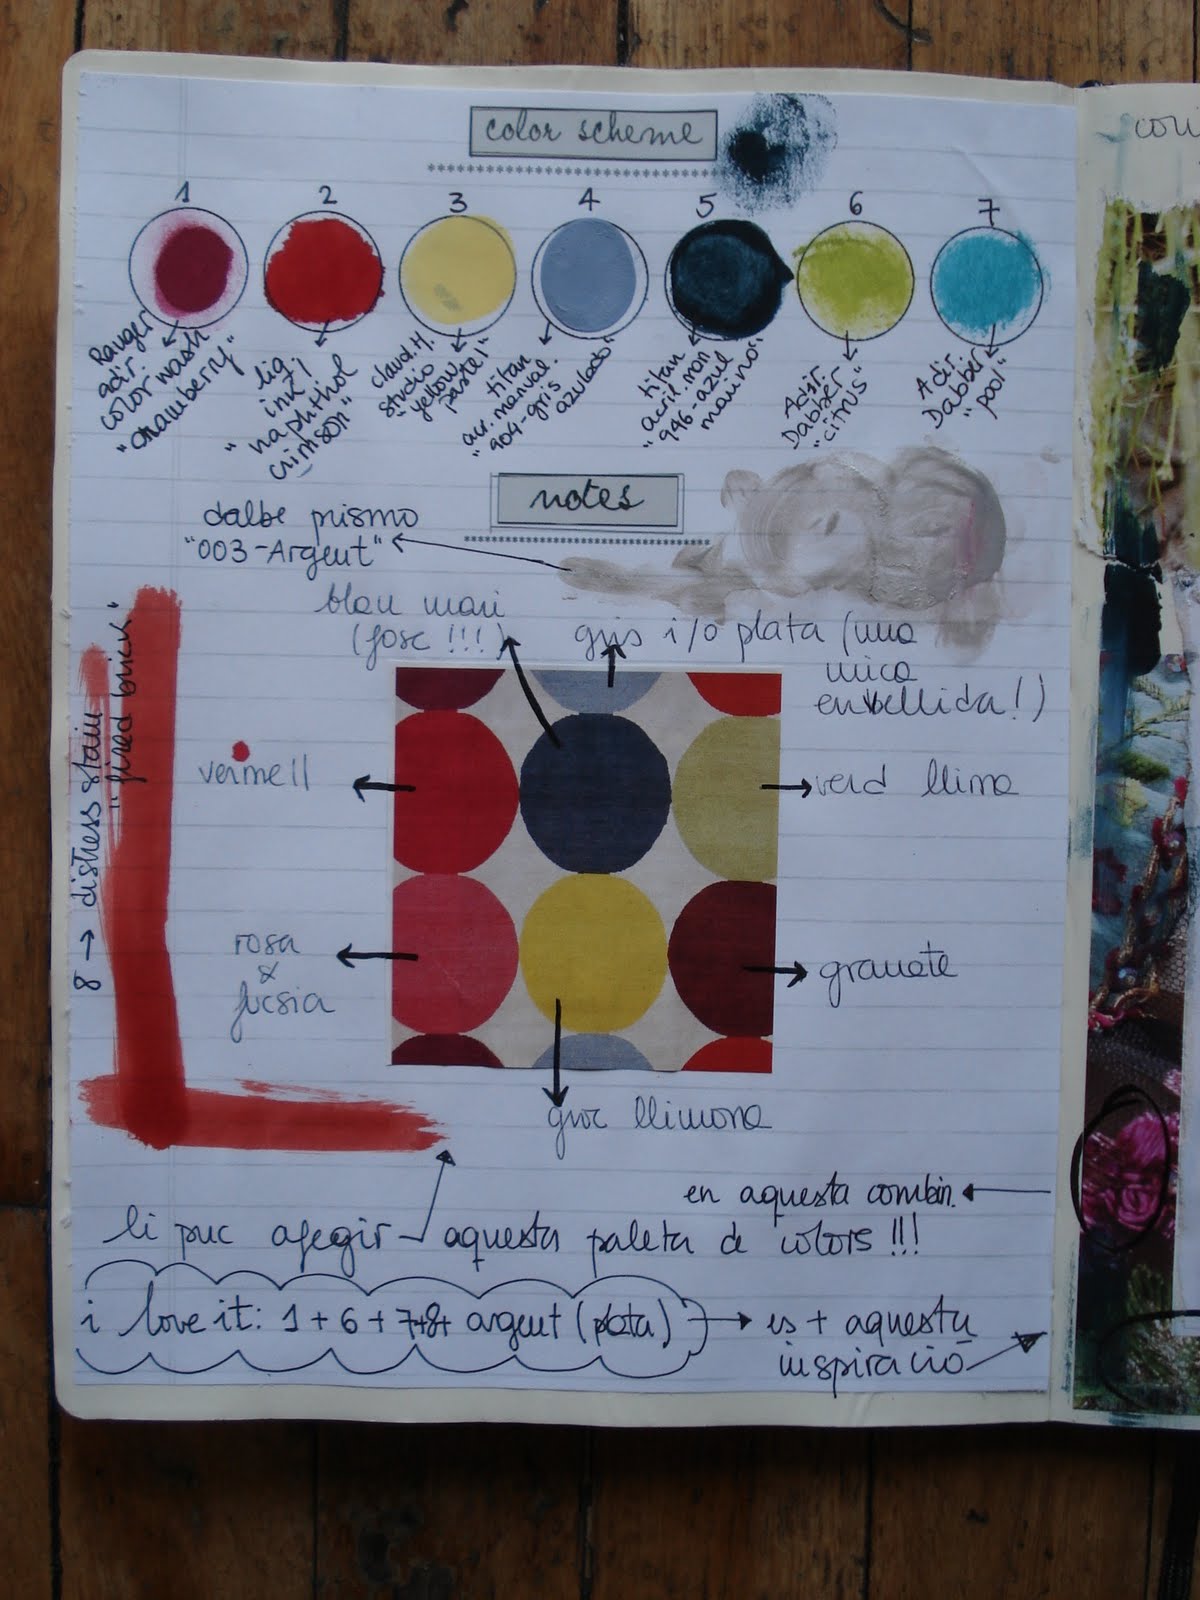 color scheme
1 2 3 4 5 6 7
Ranger
adir.
color wash
"cranberry"
liq.
ink!
"naphthol
crimson"
claud. H.
studio
"yellow
pastel"
titan
acr. manual.
"904-gris
azulado"
titan
acril. mon
"946-azul
marino"
Adir.
Dabber
"citrus"
Adir
Dabber
"pool"
notes
dalbe prismo
"003-Argent"
blau marí
(fosc!!!)
gris i/o plata (una
mica
embellida!)
8 → distress stain
"fired brick"
vermell
verd llima
rosa
&
fucsia
granate
groc llimona
en aquesta combin.
li puc afegir aquesta paleta de colors!!!
i love it: 1+6+7+8+ argent (plata) → es + aquesta
inspiració